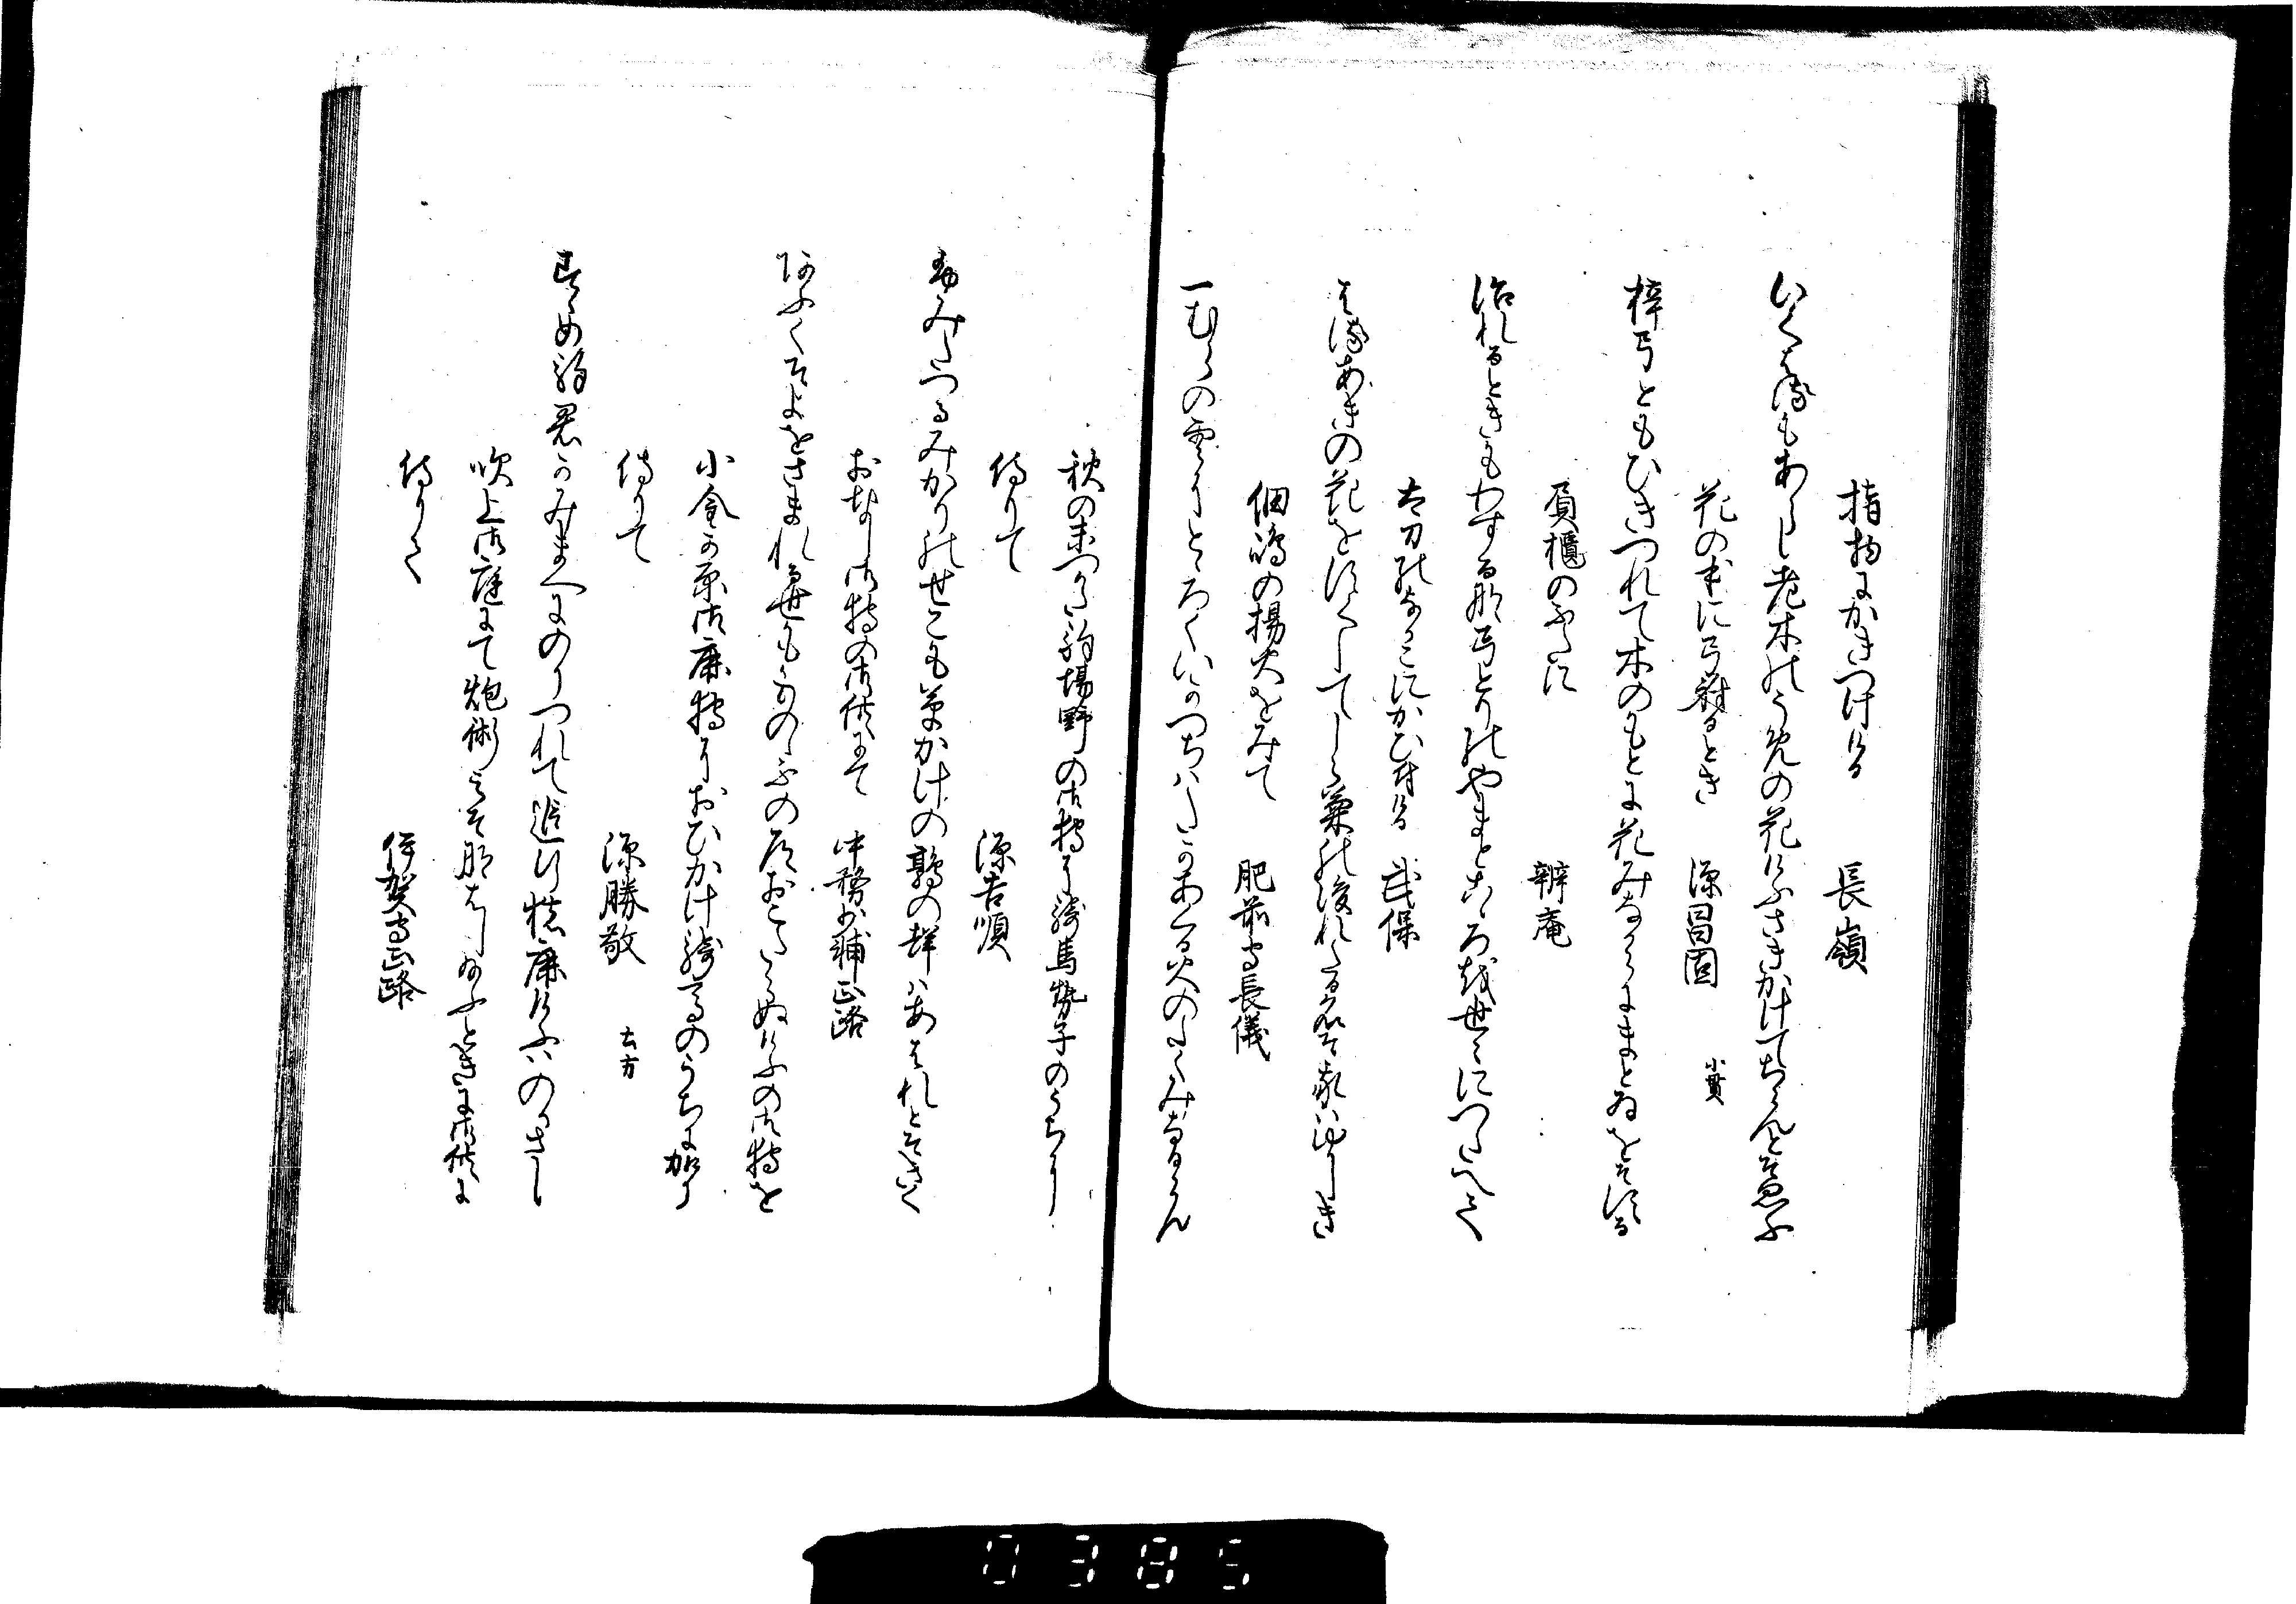 指物にかきつける　長嶺
いくはるもあらし老木のうめの花けふさきかけてちらんとそ思ふ
花の本に弓射るとき　源昌固　小貫
梓弓ともひきつれて木のもとに花みなからにまとゐをそする
具櫃のふたに　辨庵
治れるときもわするな弓とりのやまとこゝろを世々につたへて
太刀のなかこにかひ付る　武保
はるあきの花をけたしてしら菊の後れたる名そ家はゆかしき
佃嶋の揚火をみて　肥前守長儀
一むらの雲にとゝろくいかつちはたかあくる火のたくみなるらん
秋の末つかた駒場野の御狩に騎馬勢子のうちに
侍りて　源吉順
ふみたつるみかりのせこも草かけの鶉の群はあはれとそきく
おなし御狩の御供にて　中務少輔正路
あふくそよをさまれる世ももののふの道おこたらぬけふの御狩を
小金か原御鹿狩におひかけ騎馬のうちに加り
侍りて　源勝敬　玄方
すゝめ駒君かみまへにのりつれて追行猪鹿けふはのかさし
吹上御庭にて炮術こそなはし給ふときに御供に
侍りて　伊賀守正路
0385